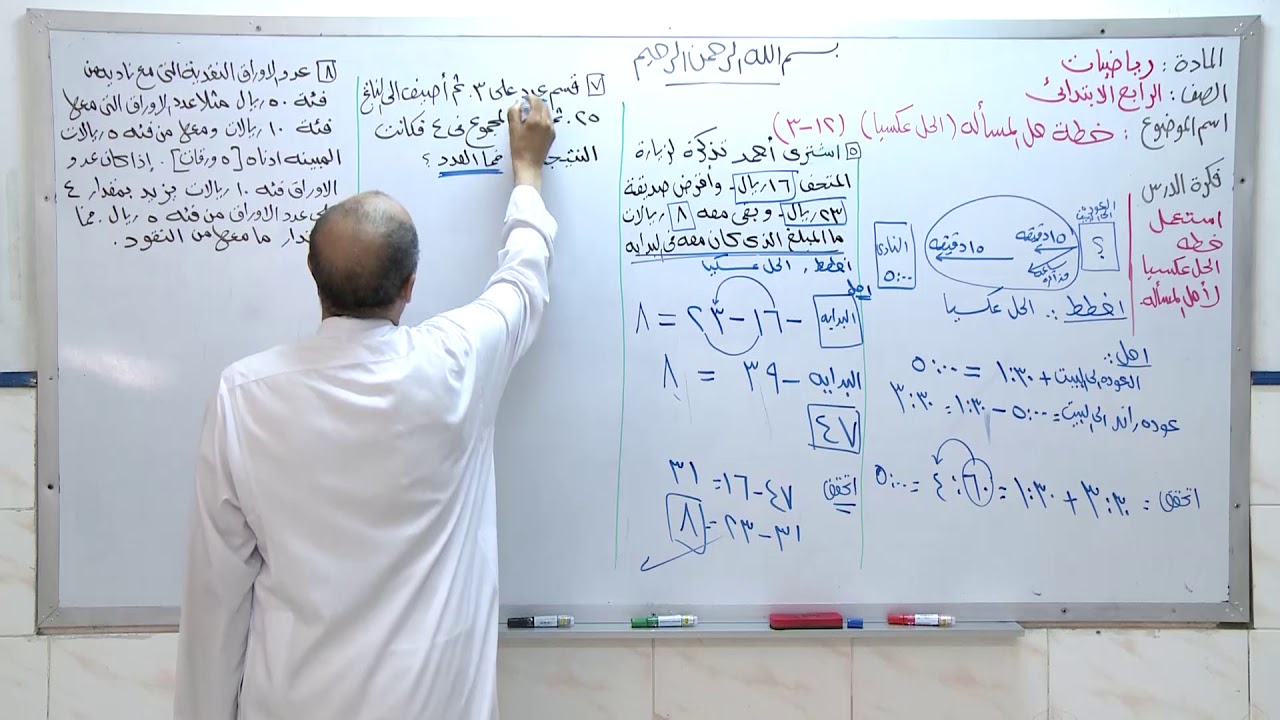 بسم الله الرحمن الرحيم
المادة : رياضيات
الصف : الرابع الابتدائى
اسم الموضوع : خطة حل المسأله (الحل عكسيا) (١٢-٣)
فكرة الدرس
استعمل
خطه
الحل عكسيا
لأحل المسأله
العودة
للبيت
؟
١٥ دقيقه
١٥ دقيقه
مذاكره
النادى
٥:٠٠
اخطط : الحل عكسيا
احل :
العوده الى البيت + ١:٣٠ = ٥:٠٠
عوده رائد الى البيت = ٥:٠٠ - ١:٣٠ = ٣:٣٠
اتحقق = ٣:٣٠ + ١:٣٠ = ٤:٦٠ = ٥:٠٠
٥ اشترى أحمد تذكرة لزيارة
المتحف ١٦ ريال . وأقرض صديقة
٢٣ ريال . و بقى معه ٨ ريالات
ما المبلغ الذى كان معه فى البدايه
اخطط , الحل عكسيا
احل
البدايه - ١٦ - ٢٣ = ٨
البدايه - ٣٩ = ٨
٤٧
اتحقق ٤٧ - ١٦ = ٣١
٣١ - ٢٣ = ٨
٧ قسم عدد على ٣ . ثم أضيف الى الناتج
٢٥ . المجموع فى ٤ فكانت
النتيجة مما العدد ؟
٨ عدد الاوراق النقدية التى مع ناديه من
فئة ٥٠ ريال مثلا عدد الاوراق التى معها
فئة ١٠ ريالات ومعها من فئه ٥ ريالات
المبينه ادناه [٥ ورقات] . إذا كان عدد
الاوراق فئه ١٠ ريالات يزيد بمقدار ٤
على عدد الاوراق من فئه ٥ ريال . مما
ما معها من النقود .